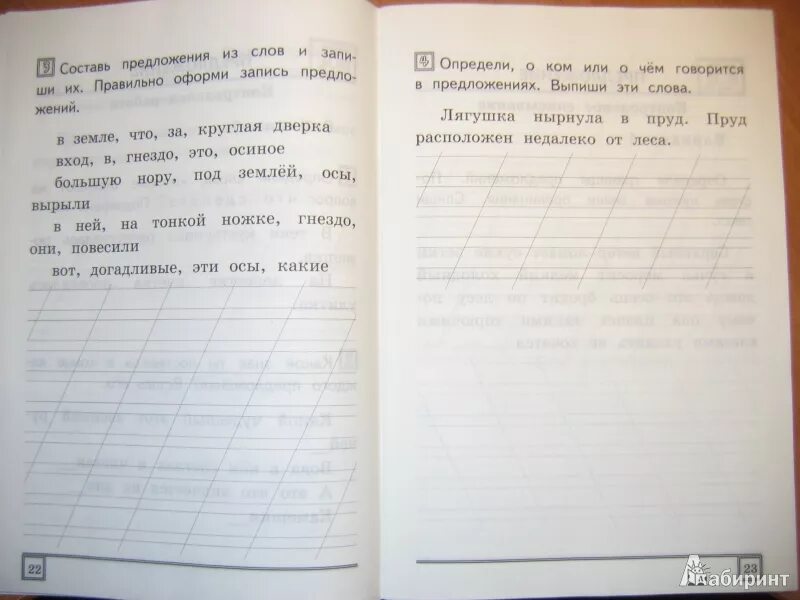 3 Составь предложения из слов и запи-
ши их. Правильно оформи запись предло-
жений.
в земле, что, за, круглая дверка
вход, в, гнездо, это, осиное
большую нору, под землёй, осы,
вырыли
в ней, на тонкой ножке, гнездо,
они, повесили
вот, догадливые, эти осы, какие
22
4 Определи, о ком или о чём говорится
в предложениях. Выпиши эти слова.
Лягушка нырнула в пруд. Пруд
расположен недалеко от леса.
23
Лабиринт